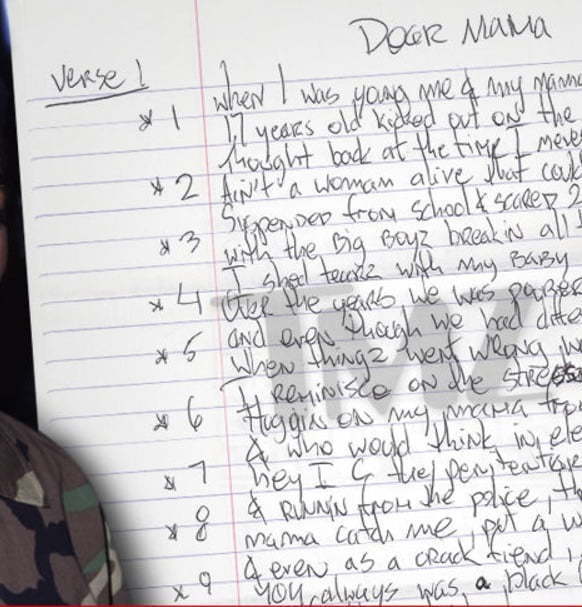 Dear Mama
Verse 1
when I was young me & my mama
* 1 17 years old kicked out on the
thought back at the time I never
* 2 Ain't a woman alive that coul
Suspended from school & scared 2
* 3 with the Big Boyz breakin all
I shed tearz with my Baby
* 4 Over the years we was poorer
and even though we had diffe
* 5 when thingz went wrong
I reminisce on the stress
* 6 Huggin on my mama from
& who would think in ele
* 7 hey I C the penitentiary
& RUNNIN from the police, th
* 8 mama catch me, put a w
& even as a crack fiend,
* 9 you always was a black
TMZ